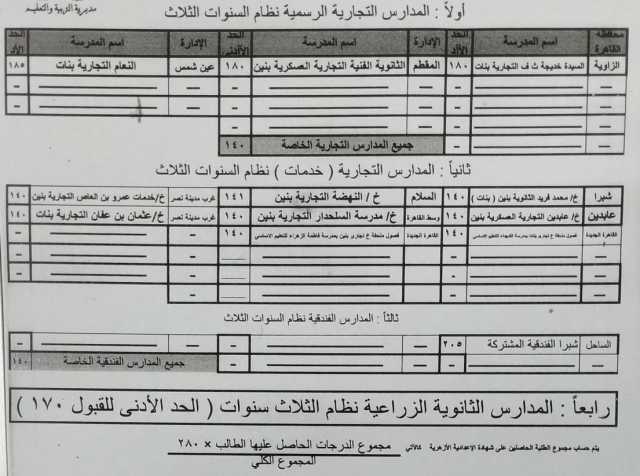 مديرية التربية والتعليم
أولاً : المدارس التجارية الرسمية نظام السنوات الثلاث
محافظة القاهرة اسم المدرسة الحد الأدنى الإدارة اسم المدرسة الحد الأدنى الإدارة اسم المدرسة الحد الأدنى
الزاوية السيدة خديجة ث ف التجارية بنات ١٨٠ المقطم الثانوية الفنية التجارية العسكرية بنين ١٨٠ عين شمس النعام التجارية بنات ١٨٥
جميع المدارس التجارية الخاصة ١٤٠
ثانياً : المدارس التجارية ( خدمات ) نظام السنوات الثلاث
شبرا خ/ محمد فريد الثانوية بنين ( بنات ) ١٤٠ السلام خ / النهضة التجارية بنين ١٤١ غرب مدينة نصر خ/خدمات عمرو بن العاص التجارية بنين ١٤٠
عابدين خ/ عابدين التجارية العسكرية بنين ١٤٠ وسط القاهرة خ/ مدرسة السلحدار التجارية بنين ١٤٠ غرب مدينة نصر خ/عثمان بن عفان التجارية بنات ١٤٠
القاهرة الجديدة فصول ملحقة خ تجارى بنات بمدرسة الشهداء للتعليم الاساسي ١٤٠ القاهرة الجديدة فصول ملحقة خ تجارى بنين بمدرسة فاطمة الزهراء للتعليم الاساسي ١٤٠
ثالثاً : المدارس الفندقية نظام السنوات الثلاث
الساحل شبرا الفندقية المشتركة ٢٠٥
جميع المدارس الفندقية الخاصة ١٤٠
رابعاً : المدارس الثانوية الزراعية نظام الثلاث سنوات ( الحد الأدنى للقبول ١٧٠ )
يتم حساب مجموع الطلبة الحاصلين على شهادة الإعدادية الأزهرية كالآتي مجموع الدرجات الحاصل عليها الطالب × ٢٨٠
المجموع الكلي